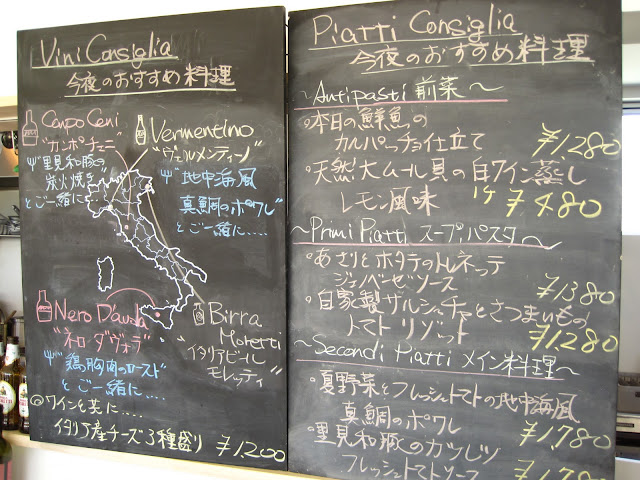 Vini Consiglia
今夜のおすすめ料理
Canpo Ceni
"カンポチェニ"
"里見和豚の
炭火焼き"
とご一緒に‥‥
Vermentino
"ヴェルメンティーノ"
"地中海風
真鯛のポワレ"
とご一緒に‥‥
Nero D'avola
"ネロ ダヴォラ"
"鶏胸肉のロースト"
とご一緒に‥‥
Birra
Moretti
"イタリアビール
モレッティ"
◎ワインと共に‥‥
イタリア産チーズ3種盛り ¥1,200
Piatti Consiglia
今夜のおすすめ料理
~Antipasti 前菜~
・本日の鮮魚の
カルパーチョ仕立て ¥1,280
・天然大ムール貝の白ワイン蒸し
レモン風味 1ケ ¥480
~Primi Piatti スープ、パスタ~
・あさりとホタテのトレネッテ
ジェノベーゼソース ¥1380
・自家製サルシッチャとさつまいもの
トマトリゾット ¥1,280
~Secondi Piatti メイン料理~
・夏野菜とフレッシュトマトの地中海風
真鯛のポワレ ¥1,780
・里見和豚のカツレツ
フレッシュトマトソース